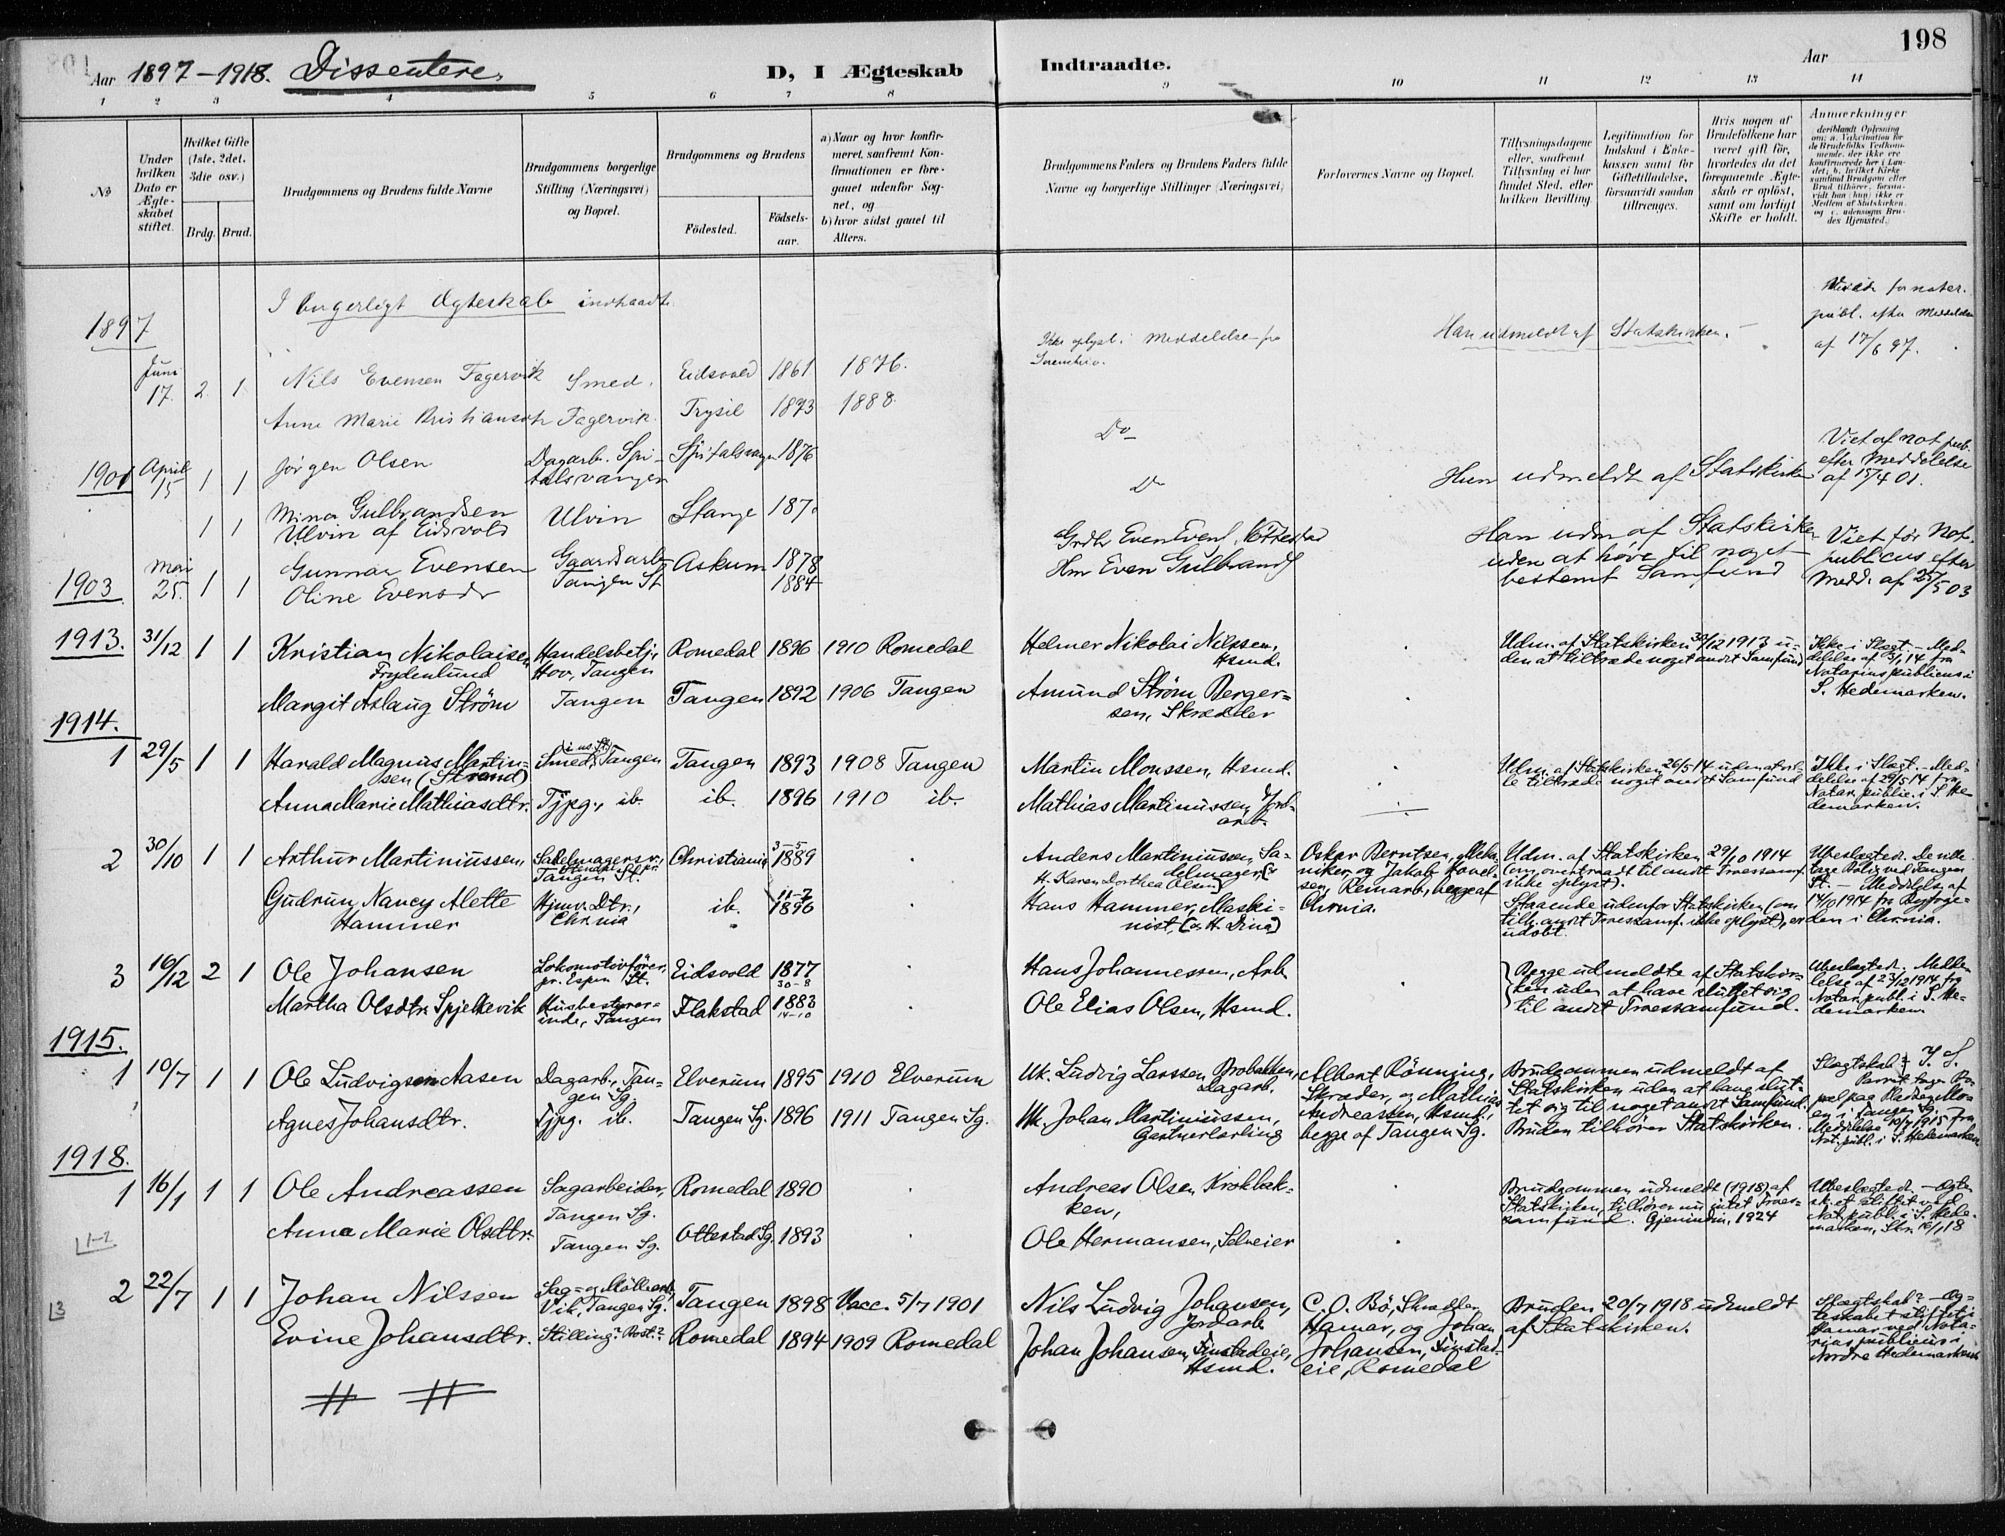 198
Aar 1897-1918. Dissentere.
D, I Ægteskab Indtraadte. Aar
1 2 3 4 5 6 7 8 9 10 11 12 13 14
No
Under hvilken Dato er Ægteskabet stiftet.
Hvilket Gifte (1ste, 2det, 3die osv.)
Brdg. Brud.
Brudgommens og Brudens fulde Navne
Brudgommens borgerlige Stilling (Næringsvei) og Bopæl.
Brudgommens og Brudens
Fødested. Fødselsaar.
a) Naar og hvor konfirmeret, saafremt Konfirmationen er foregaaet udenfor Sognet, og
b) hvor sidst gaaet til Alters.
Brudgommens Faders og Brudens Faders fulde
Navne og borgerlige Stillinger (Næringsvei)
Forlovernes Navne og Bopæl.
Tillysningsdagene eller, saafremt Tillysning ei har fundet Sted, efter hvilken Bevilling.
Legitimation for Indskud i Enkekassen samt for Giftetilladelse, forsaavidt saadan tiltrænges.
Hvis nogen af Brudefolkene har været gift før, hvorledes da det foregaaende Ægteskab er opløst, samt om lovligt Skifte er holdt.
Anmærkninger
1897
I borgerligt Ægteskab indtraadte
Juni 17. 2 1 Nils Evensen Fagervik Smed. Eidsvold 1861 1876.
Ikke oplyst i Meddelelse fra
Han udmeldt af Statskirken.
Viede for noter. publ. efter Meddelelse af 17/6 97.
Anne Marie Kristiansdtr Fagervik. Trysil 1873 1888.
Do
1901 April 15 1 1 Jørgen Olsen Dagarb. Spitalsvangen Spitalsvangen 1876
Do
Hun udmeldt af Statskirken
Viet af not pub. efter Meddelelse af 15/4 01.
1 1 Mina Gulbrandsen Ulvin af Eidsvold Ulvin Stange 187
1903 Mai 25. 1 1 Gunnar Evensen Gaardsarb Tangen St Askum 1878
Grdbr Even Evens. Ottestad
Han udm af Statskirken uden at høre til noget bestemt Samfund
Viet for Not. publicus efter Medd. af 25/5 03
Oline Evensdr 1884
Hm Even Gulbrands
1913. 31/12 1 1 Kristian Nikolaisen Frydenlund Handelsbetj., Hov, Tangen Romedal 1896 1910 Romedal
Helmer Nikolai Nilssen, Hsmd.
Udm. af Statskirken 30/12 1913 uden at tiltræde noget andet Samfund
Ikke i Slægt. - Meddelelse af 3/1 14 fra Notarius publicus i S. Hedemarken.
Margit Aslaug Strøm Tangen Tangen 1892 1906 Tangen
Amund Strøm Bergersen, Skrædder
1914.
1 29/5 1 1 Harald Magnus Martinsen (Strand) Smed, Tangen Tangen 1893 1908 Tangen
Martin Monssen, Hsmd.
Udm. af Statskirken 26/5 14 uden at ville tiltræde noget andet Samfund
Ikke i Slægt. - Meddelelse af 29/5 14 fra Notar. public. i S. Hedemarken.
Anna Marie Mathiasdtr. Tjpg., ib. ib. 1896 1910 ib.
Mathias Martinussen, Jordarb.
2 30/10 1 1 Arthur Martiniussen, Sadelmagersv., Tangen St. Christiania 3-5 1889
Anders Martiniussen, Sadelmager (& H. Karen Dorthea Olsen)
Oskar Berntsen, Mekaniker, og Jakob Hanelsen, Renarb., begge af Chrnia.
Udm. af Statskirken 29/10 1914 (om overtraadt til andet Troessamf. ikke oplyst).
Ubeslægted. De ville tage Bolig ved Tangen St. - Meddelelse af 14/10 1914 fra Byfogeden i Chrnia.
Gudrun Nancy Alette Hammer Hjmv. Dtr., Chrnia ib. 11-7 1896
Hans Hammer, Maskinist, (& H. Dina)
Staaende udenfor Statskirken (om tilh. andet Troessamf. ikke oplyst), er udøbt.
3 16/12 2 1 Ole Johansen Lokomotivfører, pr. Espn St. Eidsvold 1877 30-8
Hans Johannessen, Arb.
Begge udmeldte af Statskirken uden at have sluttet sig til andet Troessamfund.
Ubeslægted. Meddelelse af 23/12 1914 fra Notar. publ. i S. Hedemarken.
Martha Olsdtr. Spjelkevik Husbestyrerinde, Tangen Flakstad 1883 14-10
Ole Elias Olsen, Hsmd.
1915.
1 10/7 1 1 Ole Ludvigsen Aasen Dagarb., Tangen Sg. Elverum 1895 1910 Elverum
Uk. Ludvig Larssen Brobakken, Dagarb.
Albert Rönning, Skræder, og Mathias Andreassen, Hsmd., begge af Tangen Sg.
Brudgommen udmeldt af Statskirken uden at have sluttet sig til noget andet Samfund. Bruden tilhører Statskirken.
Agnes Johansdtr. Tjpg. ib. Tangen Sg. 1896 1911 Tangen Sg.
Uk. Johan Martiniussen, Gartnerlærling
1918.
1 16/1 1 1 Ole Andreassen Sagarbeider, Tangen Sg. Romedal 1890
Andreas Olsen Krokbakken,
Brudgommen udmeldt (1918) af Statskirken, tilhører nu intet Troessamfund. Gjenindm. 1924
Ubeslægted. - Ægtesk. et stiftet ved Not. publ. i S. Hedemarken, Skr. 16/1 18
Anna Marie Olsdtr. Tangen Sg. Ottestad Sg. 1893
Ole Hermansen, Selveier
1-2
2 22/7 1 1 Johan Nilssen Sag- og Møllearb., Vik, Tangen Sg. Tangen 1898 Vacc. 5/7 1901
Nils Ludvig Johansen, Jordarb.
C. O. Bö, Skrædder, Hamar, og Johan Johansen, Finstadeie, Romedal
Bruden 20/7 1918 udmeldt af Statskirken.
Slægtskab? - Ægteskabet stiftet i Hamar ved Notarius publicus i Nordre Hedemarken
13
Evine Johansdtr. Stilling? Bost.? Romedal 1894 1909 Romedal
Johan Johansen, Finstadeie, Hsmd.